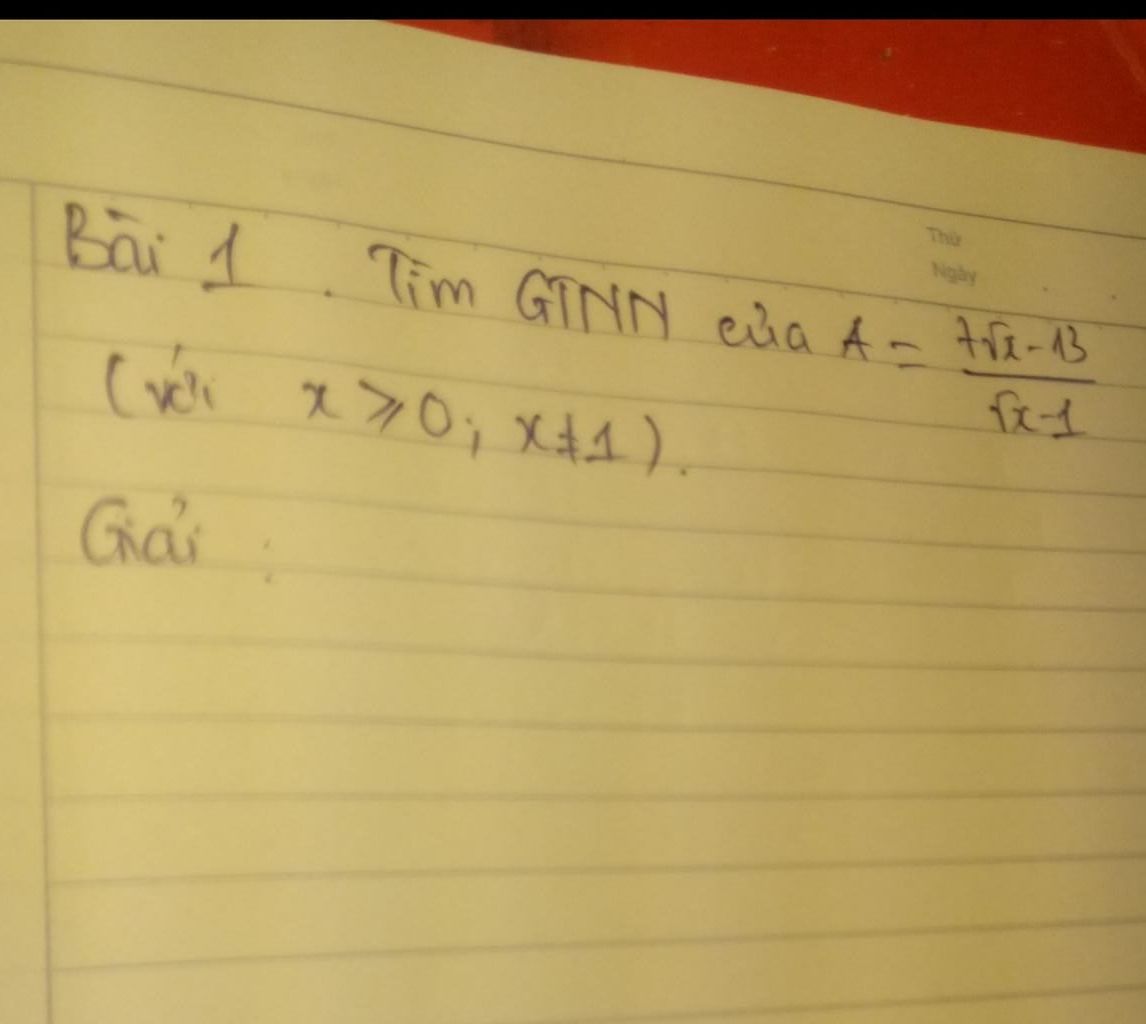 Thứ
Ngày
Bài 1. Tìm GTNN của A = \frac{7\sqrt{x}-13}{\sqrt{x}-1}
(với x ≥ 0; x ≠ 1).
Giải: